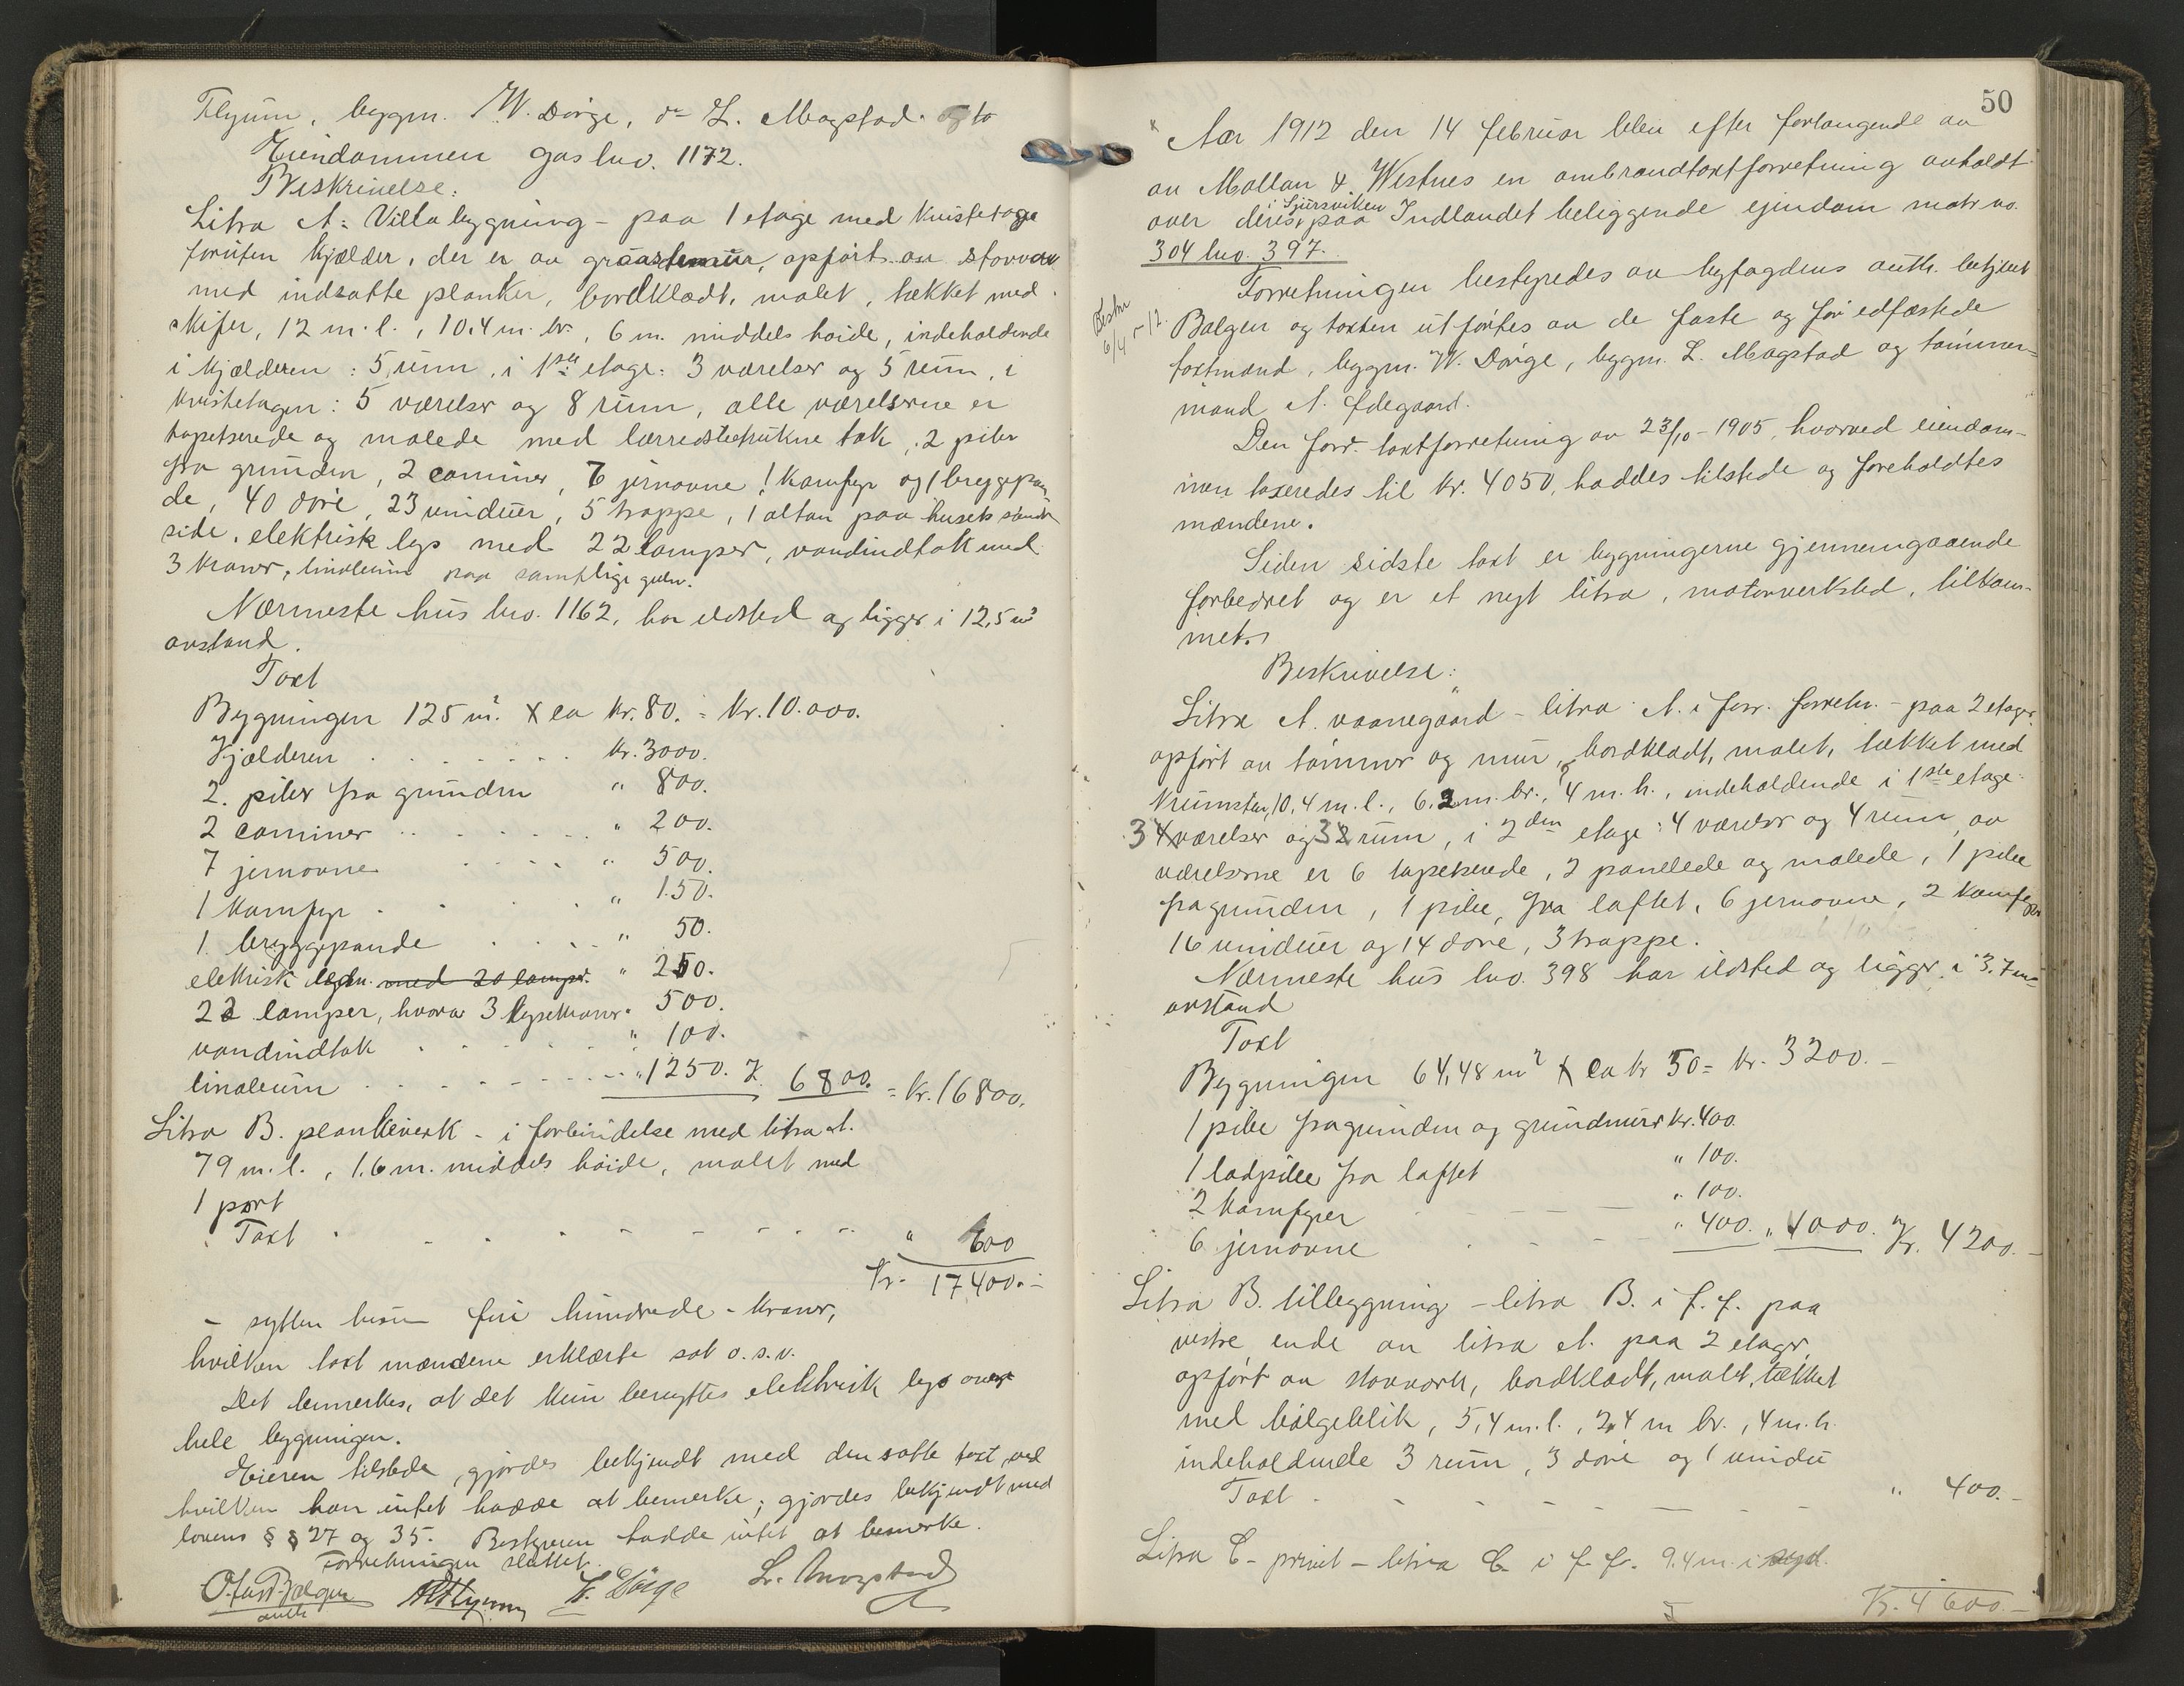 Flyum, bygm. W. Dörge, do L. Magstad. og to
Eiendommen gas bno. 1172.
Beskrivelse:
Litra A: Villabygning - paa 1 etage med kvistetage
foruten kjælder, der er av graastensmur, opført av stavverk
med indsatte planker, bordklædt, malet, tækket med
skifer, 12 m. l., 10,4 m. br., 6 m. middels høide, indeholdende
i kjælderen: 5 rum, i 1ste etage: 3 værelser og 5 rum, i
kvistetagen: 5 værelser og 8 rum, alle værelserne er
tapetserede og malede med lærredsbetrukne tak, 2 piber
fra grunden, 2 caminer, 7 jernovne, 1 komfyr og 1 bryggepan
de, 40 døre, 23 vinduer, 5 trappe, 1 altan paa husets søndre
side, elektrisk lys med 22 lamper, vandindtak med
3 kraner, linoleum paa samtlige gulv.
Nærmeste hus bno. 1162, har ildsted og ligger i 12,5 m's
avstand.
Taxt
Bygningen 125 m². X ca kr. 80. = kr. 10.000.
Kjælderen . . . . . . . kr. 3000.
2. piber fra grunden " 800.
2 caminer . . . . . . " 200.
7 jernovne . . . . " 500.
1 komfyr . . . . " 150.
1. bryggepande . . . . " 50.
elektrisk ledn. med 20 lamper. " 250.
22 lamper, hvorav 3 lysekroner " 500.
vandindtak . . . . . . " 100.
linoleum . . . . . . . . " 1250. " 6800. = kr. 16800.
Litra B. plankeverk - i forbindelse med litra A.
79 m. l., 1.6 m. middels høide, malet med
1 port
Taxt . . . . . . . . . " 600
Kr. 17400.-
- sytten tusen fire hundrede - kroner,
hvilken taxt mændene erklærte sat o. s. v.
Det bemerkes, at det kun benyttes elektrisk lys over
hele bygningen.
Eieren tilstede, gjordes bekjendt med den satte taxt, ved
hvilken han intet hadde at bemerke; gjordes bekjendt med
lovens § § 27 og 35. Bestyreren hadde intet at bemerke.
Forretningen sluttet.
W. Dörge L. Magstad
auth
50
Aar 1912 den 14 februar blev efter forlangende av
av Mollan & Westnes en ombrandtaxtforretning avholdt
over deres i Sjursviken paa Indlandet beliggende ejendom matr no.
304 bno. 397.
Forretningen bestyredes av byfogdens auth. betjent
Bestr
6/4 - 12.
Bølgen og taxten utførtes av de faste og før edfæstede
taxtmænd, bygm. W. Dörge, bygm. L. Magstad og tømmer=
mand A. Ødegaard.
Den forr. taxtforretning av 23/10 - 1905, hvorved eiendom-
men taxeredes til kr. 4050, haddes tilstede og foreholdtes
mændene.
Siden sidste taxt er bygningerne gjennemgaaende
forbedret og er et nyt litra, motorverksted, tilkom-
met.
Beskrivelse:
Litra A. vaanegaard - litra A. i forr. forretn. - paa 2 etager
opført av tømmer og mur, bordklædt, malet, tækket med
krumsten, 10,4 m. l., 6,2 m. br., 4 m. h., indeholdende i 1ste etage:
3 værelser og 3 rum, i 2den etage: 4 værelser og 4 rum, av
værelserne er 6 tapetserede, 2 panellede og malede, 1 pibe
fra grunden, 1 pibe, fra loftet, 6 jernovne, 2 komfyrer
16 vinduer og 14 døre, 3 trappe.
Nærmeste hus bno. 398 har ildsted og ligger i 3.7 m=
avstand
Taxt
Bygningen 64,48 m² X ca kr 50 = kr. 3200.-
1 pibe fra grunden og grundmur kr. 400.
1 ladpibe fra loftet " 100.
2 komfyrer . - - - - " 100.
6 jernovne . . - - " 400. " 1000. Kr. 4200.-
Litra B. tilbygning - litra B. i f. f. paa
vestre ende av litra A. paa 2 etager,
opført av stavverk, bordklædt, malet, tækket
med bølgeblik, 5,4 m. l., 2,4 m br., 4 m. h.
indeholdende 3 rum, 3 døre og 1 vindu
Taxt . - - - - - - - " 400.-
Litra C - privet - litra C i f. f. 9.4 m. i
Kr. 4600.-